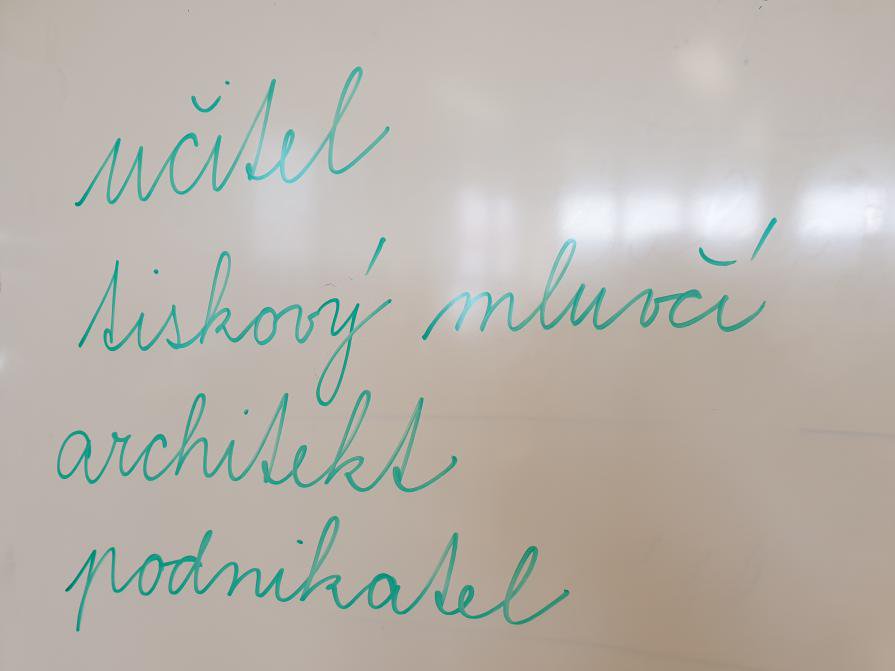 učitel
tiskový mluvčí
architekt
podnikatel